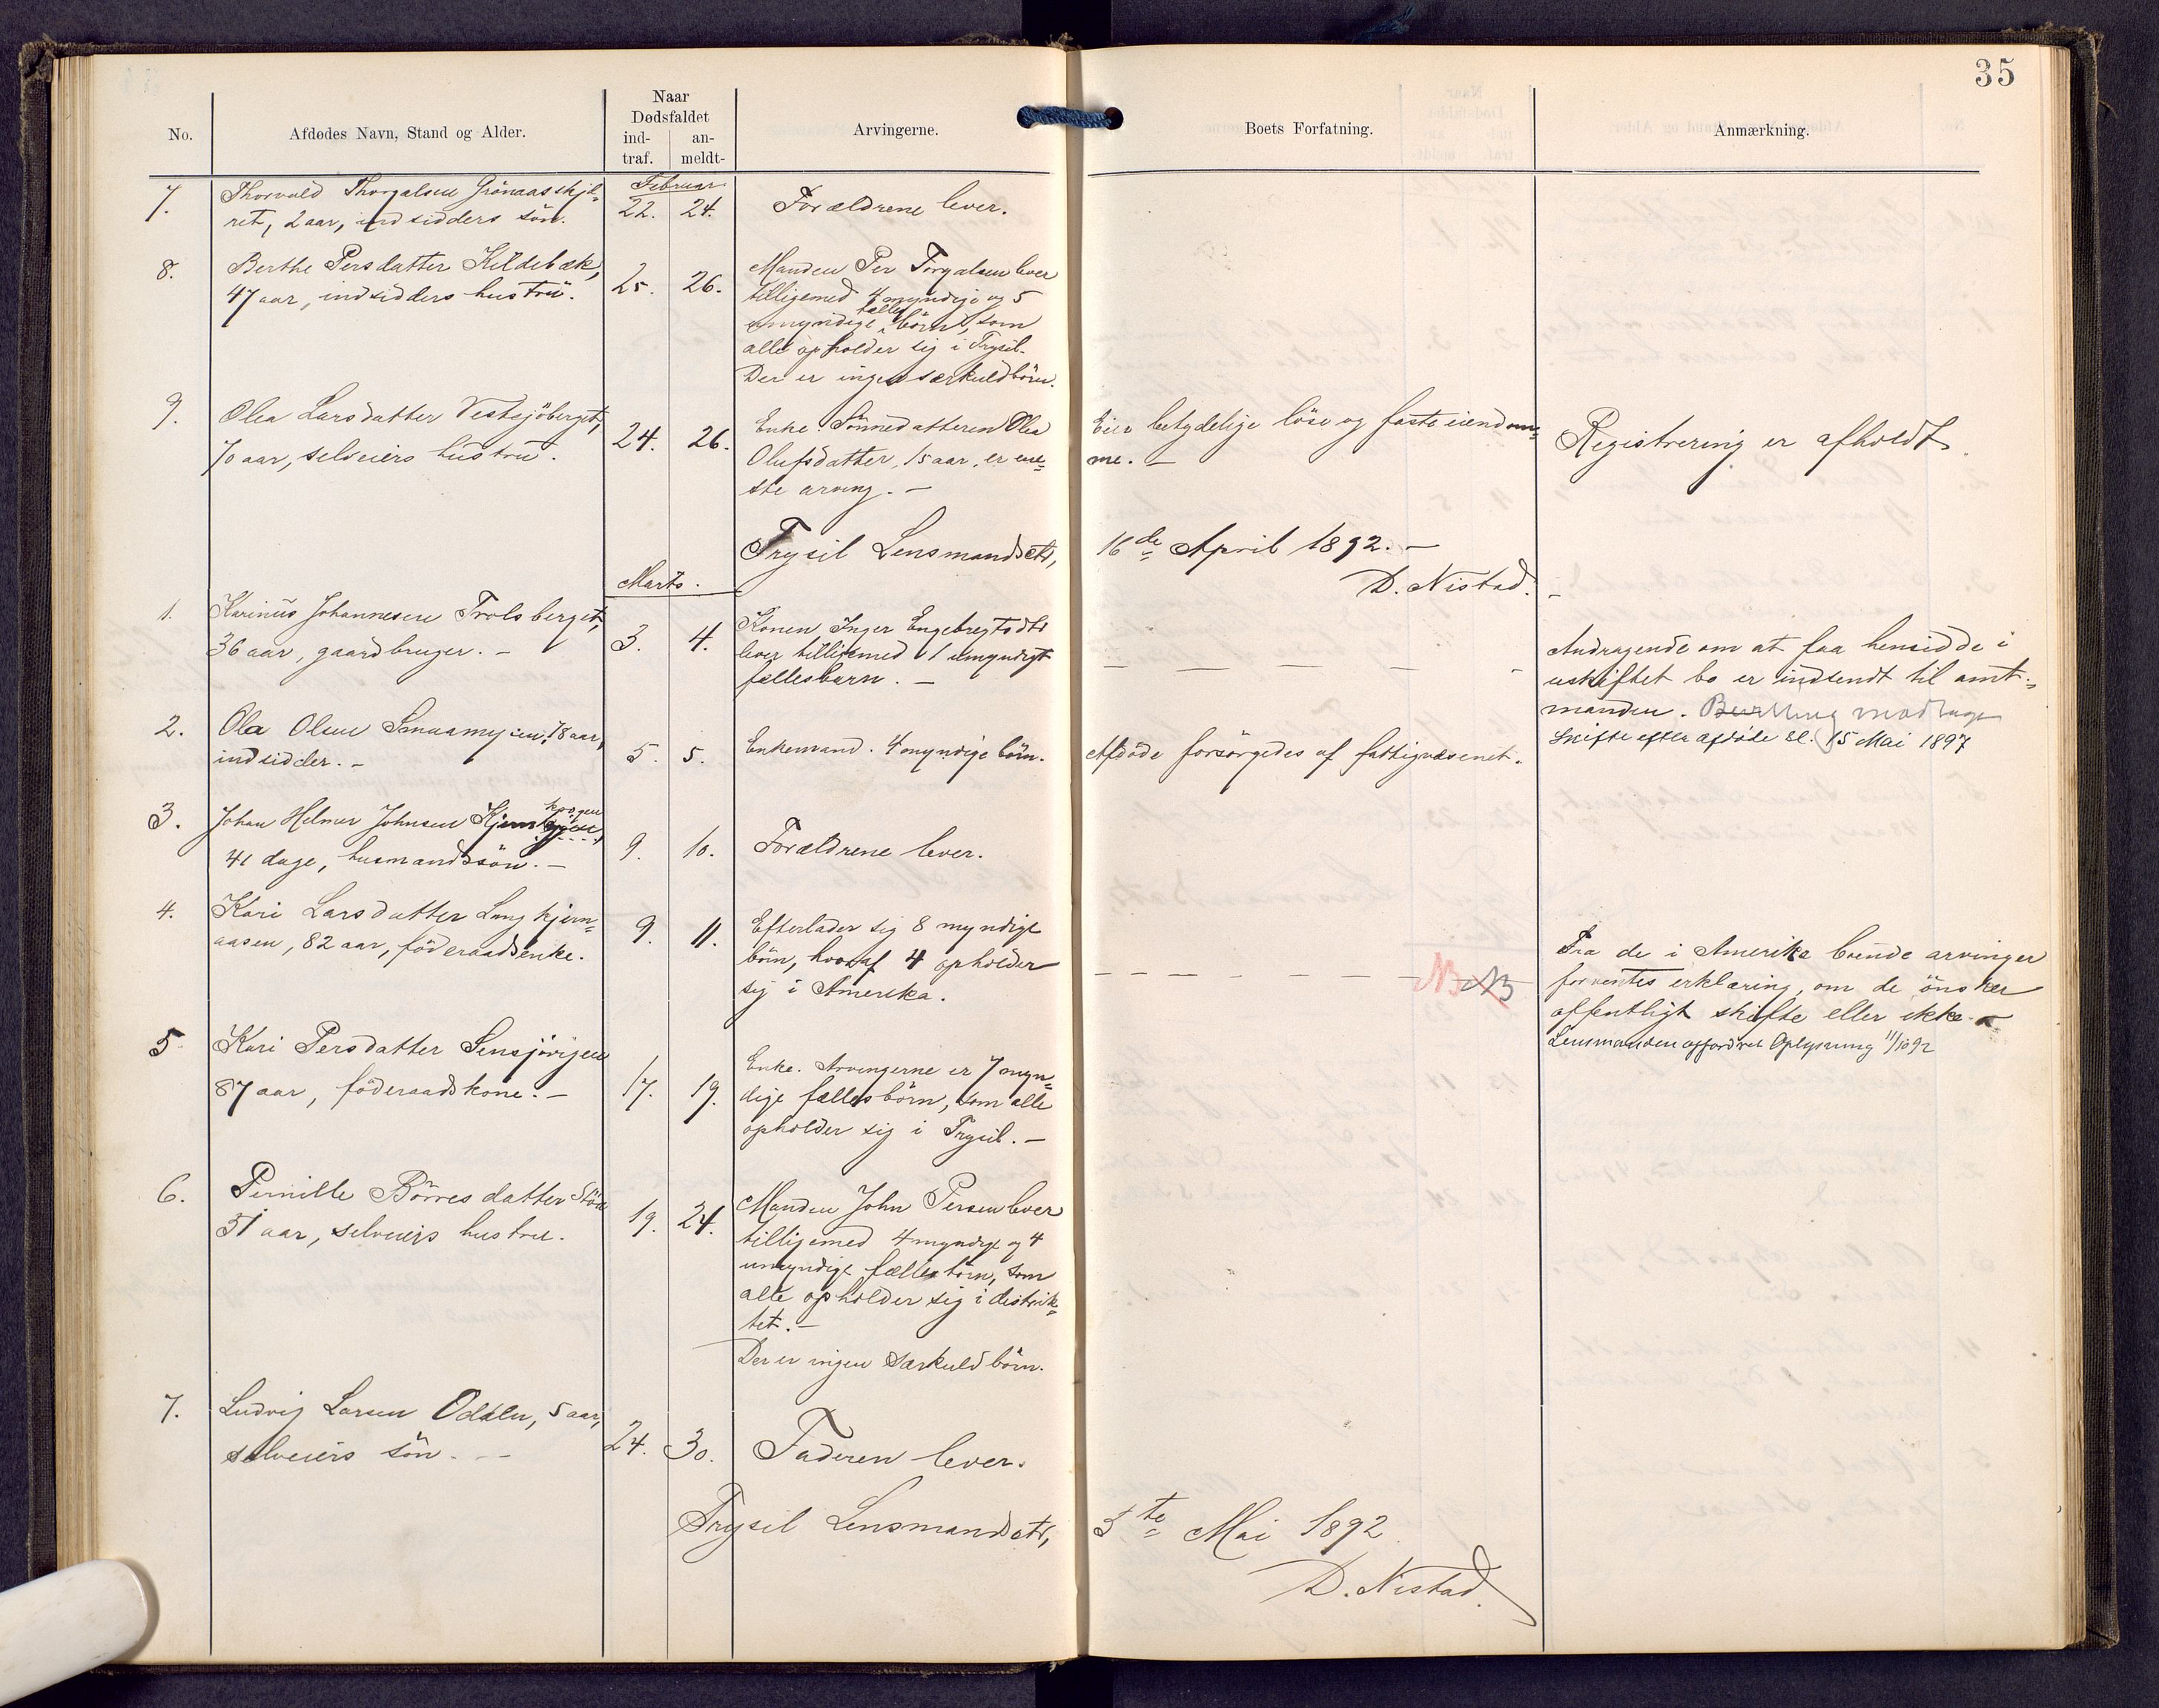 35
No.
Afdødes Navn, Stand og Alder.
Naar
Dødsfaldet
ind-
traf.
an-
meldt-
Arvingerne.
Boets Forfatning.
Anmærkning.
Februar
7.
Thorvald Thorgalsen Grönaasskjæ-
ret, 2 aar, indsidders sön.
22. 24.
Forældrene lever.
8.
Berthe Persdatter Kildebæk,
47 aar, indsidders hustru.
25. 26.
Manden Per Torgalsen lever
tilligemed 4 myndige og 5
umyndige fælles börn, som
alle opholder sig i Trysil.
Der er ingen særkuldbörn.
9.
Olea Larsdatter Vestsjöberget,
70 aar, selveiers hustru.
24. 26.
Enke. Sönnedatteren Olea
Olufsdatter, 15 aar, er ene-
ste arving. –
Eier betydelige löse og faste eiendom-
me. –
Registrering er afholdt.
Trysil Lensmandsctr, 16de April 1892. –
D. Nistad.
Marts.
1.
Karinus Johannesen Trolsberget,
36 aar, gaardbruger. –
3. 4.
Konen Inger Engebregtsdtr
lever tilligemed 1 umyndigt
fællesbarn. –
Andragende om at faa hensidde i
uskiftet bo er indsendt til amt-
manden. Bevilling modtaget
Skifte efter afdöde sl. 15 Mai 1897
2.
Ola Olsen 78 aar,
indsidder. –
5. 5.
Enkemand. 4 myndige börn.
Afdöde forsörgedes af fattigvæsenet.
3.
Johan Helmer Johnsen
41 dage, husmandssön. –
9. 10.
Forældrene lever.
4.
Kari Larsdatter Langkjern-
aasen, 82 aar, föderaadsenke.
9. 11.
Efterlader sig 8 myndige
börn, hvoraf 4 opholder
sig i Amerika.
NB NB
Fra de i Amerika boende arvinger
forventes erklæring, om de önsker
offentligt skifte eller ikke. –
Lensmanden affordret Oplysning 11/10 92
5
Kari Persdatter Sensjövigen
87 aar, föderaadskone. –
17. 19.
Enke. Arvingerne er 7 myn-
dige fælles börn, som alle
opholder sig i Trysil. –
6.
Pernille Börresdatter Stöa
51 aar, selveiers hustru.
19. 24.
Manden John Persen lever
tilligemed 4 myndige og 4
umyndige fælles börn, som
alle opholder sig i distrik-
tet. –
Der er ingen særkuldbörn.
7.
Ludvig Larsen Odden, 5 aar,
selveiers sön. –
24. 30.
Faderen lever.
Trysil Lensmandsctr, 5te Mai 1892.
D. Nistad.